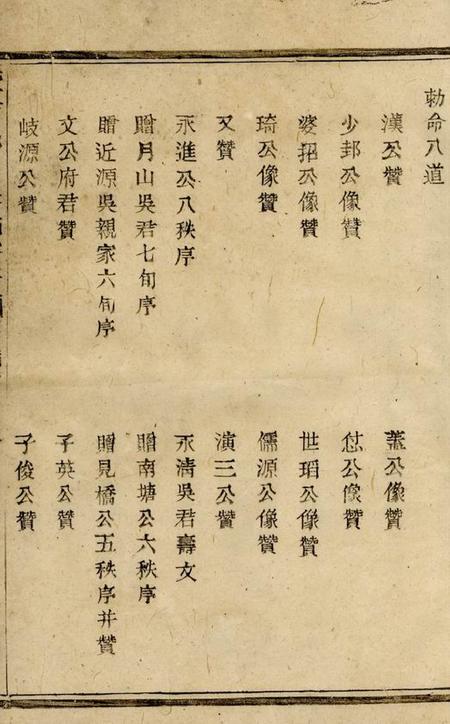 勅命八道
漢公贊
蓋公像贊
少邦公像贊
公像贊
婺招公像贊
世瑫公像贊
琦公像贊
儒源公像贊
又贊
演三公贊
永進公八秩序
永清吳君壽文
贈月山吳君七旬序
贈南塘公六秩序
贈近源吳親家六旬序
贈見橋公五秩序并贊
文公府君贊
子英公贊
岐源公贊
子俊公贊